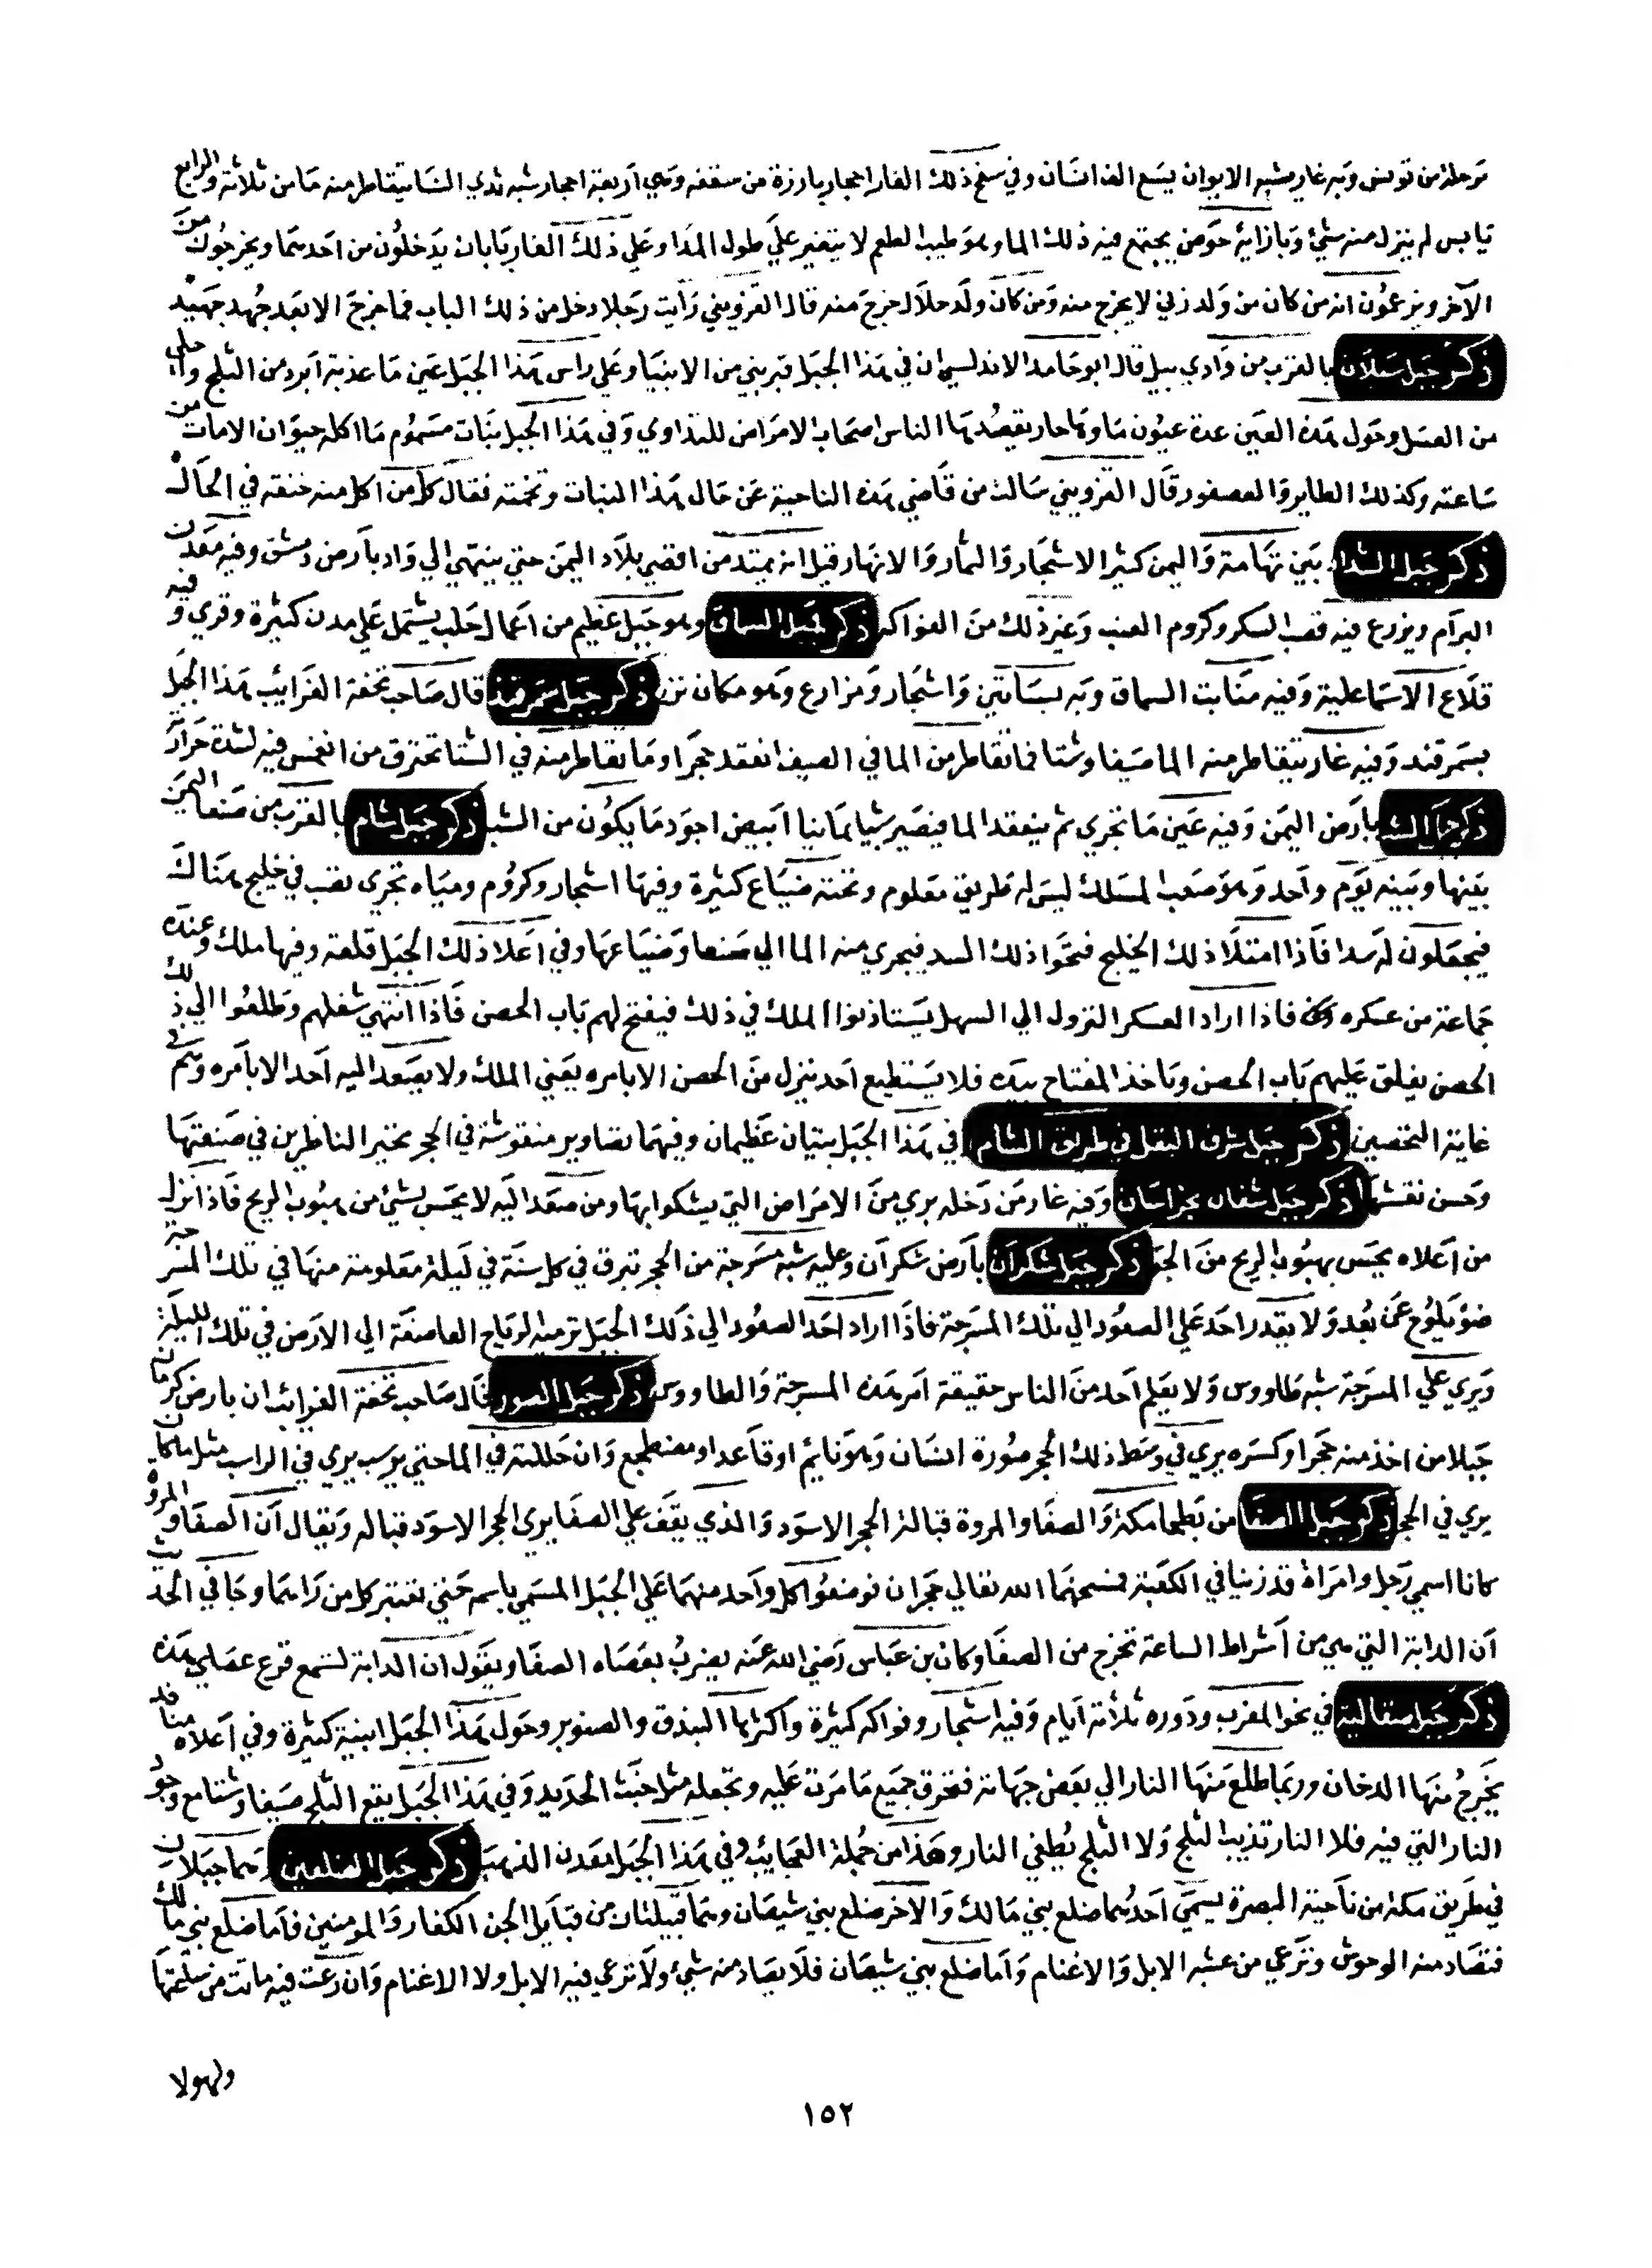 مرحلة من تونس وبه غار يشبه الايوان يسع الف انسان وفي سقف ذلك الغار احجار بارزة من سقفه وهي اربعة احجار شبه ثدي النسا يتقاطر منه ما من ثلاثة والرابع
يابس لم ينزل منه شيئ وبازايه حوض يجتمع فيه ذلك الما وهو طيب الطعم لا يتغير علي طول المدا وعلي ذلك الغار بابان يدخلون من احدهما ويخرجون من
الآخر ويزعمون انه من كان من ولد زني لا يخرج منه ومن كان ولد حلال خرج منه قال القزويني رايت رجلا دخل من ذلك الباب فما خرج الا بعد جهد جهيد
ذكر جبل سبلان بالقرب من وادي بيل قال ابو حامد الاندلسي ان في هذا الجبل قبر نبي من الانبيا وعلي راس هذا الجبل عين ما عذبة ابرد من الثلج واحلي
من العسل وحول هذه العين عدة عيون ماوها حار يقصدها الناس اصحاب الامراض للتداوي وفي هذا الجبل نبات مسموم ما اكله حيوان الا مات من
ساعته وكذلك الطاير والعصفور قال القزويني سالت من قاضي هذه الناحية عن حال هذا النبات وتحته فقال كل من اكل منه خنقه في الحال
ذكر جبل الشدا بين تهامة واليمن كثير الاشجار والثمار والانهار قيل انه يمتد من اقصي بلاد اليمن حتي ينتهي الي واد بارض دمشق وفيه معدن
البرام ويزرع فيه قصب السكر وكروم العنب وغير ذلك من الفواكه ذكر جبل السماق وهو جبل عظيم من اعمال حلب يشتمل علي مدن كثيرة وقري وفيه
قلاع الاسماعلية وفيه منابت السماق وبه بساتين واشجار ومزارع وهو مكان نزه ذكر جبل سمرقند قال صاحب تحفة الغرايب هذا الجبل
بسمرقند وفيه غار يتقاطر منه الما صيفا وشتا فما تقاطر من الما في الصيف انعقد حجرا وما تقاطر منه في الشتا تحترق من انغمس فيه لشدة حرارته
ذكر جبل الشب بارض اليمن وفيه عين ما تجري ثم ينعقد الما فيصير شبا يمانيا ابيض اجود ما يكون من الشب ذكر جبل شام بالقرب من صنعا اليمن
بينها وبينه يوم واحد وهو صعب المسلك ليس له طريق معلوم وتحته ضياع كثيرة وفيها اشجار وكروم ومياه تجري تصب في خليج هناك
فيجعلون له سدا فاذا امتلا ذلك الخليج فتحوا ذلك السد فيجري منه الما الي صنعا وضياعها وفي اعلا ذلك الجبل قلعة وفيها ملك وعنده
جماعة من عسكره فاذا اراد العسكر النزول الي السهل يستاذنوا الملك في ذلك فيفتح لهم باب الحصن فاذا انتهي شغلهم وطلعوا الي ذلك
الحصن يغلق عليهم باب الحصن وياخذ المفتاح بيده فلا يستطيع احد ينزل من الحصن الا بامره يعني الملك ولا يصعد اليه احد الا بامره وهم في
غاية التحصين ذكر جبل شرف البغل في طريق الشام في هذا الجبل بنيان عظيمان وفيهما تصاوير منقوشة في الحجر تحير الناظرين في صنعتها
وحسن نقشها ذكر جبل شقان بخراسان وفيه غار من دخله بري من الامراض التي يشكوا بها ومن صعد اليه لا يحس بشيئ من هبوب الريح فاذا نزل
من اعلاه يحس بهبوب الريح من الجبل ذكر جبل شكران بارض شكران وعليه شبه مسرجة من الحجر تبرق في كل سنة في ليلة معلومة منها في تلك المسرجة
ضوء يلوح عن بعد ولا يقدر احد علي الصعود الي تلك المسرجة فاذا اراد احد الصعود الي ذلك الجبل ترميه الرياح العاصفة الي الارض في تلك الليلة
ويري علي المسرجة شبه طاووس ولا يعلم احد من الناس حقيقة امر هذه المسرجة والطاووس ذكر جبل الصور قال صاحب تحفة الغرائب ان بارض كرمان
جبلا من اخذ منه حجرا وكسره يري في وسط ذلك الحجر صورة انسان وهو نايم او قاعد او مضطجع وان حللته في الما حتي يرسب يري في الراسب مثل ما كان
يري في الحجر ذكر جبل الصفا من بطحا مكة والصفا والمروة قبالة الحجر الاسود والذي يقف علي الصفا يري الحجر الاسود قباله ويقال ان الصفا والمروة
كانا اسمي رجل وامراة قد زنيا في الكعبة فمسخهما الله تعالي حجران فوضعوا كل واحد منهما علي الجبل المسمي باسمه حتي تعتبر كل من راهما وجا في الحديث
ان الدابة التي هي من اشراط الساعة تخرج من الصفا وكان بن عباس رضي الله عنه يضرب بعصاه الصفا ويقول ان الدابة لتسمع قرع عصاي هذه
ذكر جبل صقالية في نحو المغرب ودوره ثلاثة ايام وفيه اشجار وفواكه كثيرة واكثرها البندق والصنوبر وحول هذا الجبل ابنية كثيرة وفي اعلاه منافد
يخرج منها الدخان وربما طلع منها النار الي بعض جهاته فتحرق جميع ما مرت عليه وتجعله مثل خبث الحديد وفي هذا الجبل يقع الثلج صيفا وشتا مع وجود
النار التي فيه فلا النار تذيب الثلج ولا الثلج يطفي النار وهذا من جملة العجايب وفي هذا الجبل معدن الذهب ذكر جبل الضلعين وهما جبلان
في طريق مكة من ناحية البصرة يسمي احدهما ضلع بني مالك والاخر ضلع بني شيصان وهما قبيلتان من قبايل الجن الكفار والمومنين فاما ضلع بني مالك
فتصاد منه الوحوش وترعي من عشبه الابل والاغنام واما ضلع بني شيصان فلا يصاد منه شيئ ولا ترعي فيه الابل ولا الاغنام وان رعت فيه ماتت من سلعتها
ولهولا
١٥٢